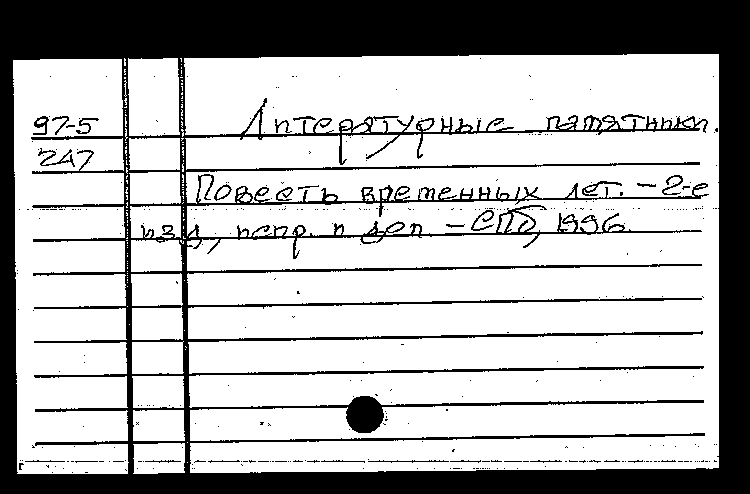 97-5 Литературные памятники.
247
Повесть временных лет. - 2-е
изд., испр. и доп. - СПб, 1996.